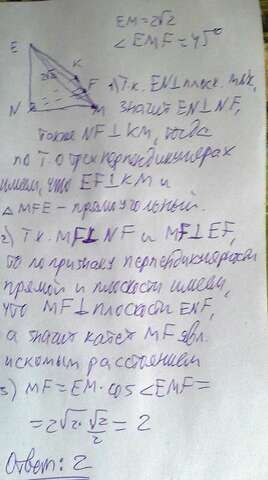 EM=2√2
∠EMF=45°
E
K
2√2
F
N
M
1) Т.к. EN⊥плоск. MNK,
значит EN⊥NF,
также NF⊥KM, тогда
по Т. о трех перпендикулярах
имеем, что EF⊥KM и
△MFE – прямоугольный.
2) Т.к. MF⊥NF и MF⊥EF,
то по признаку перпендикулярности
прямой и плоскости имеем,
что MF⊥плоскости ENF,
а значит катет MF явл.
искомым расстоянием
3) MF=EM·cos∠EMF=
=2√2·√2/2=2
Ответ: 2